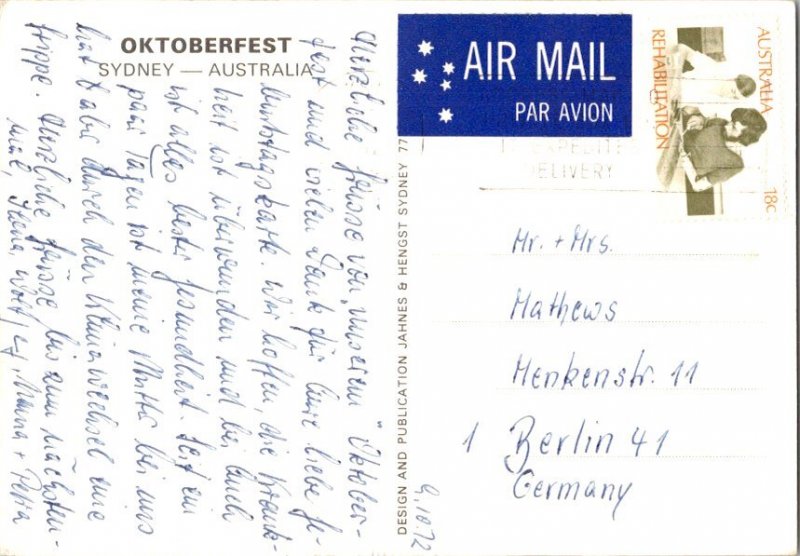 OKTOBERFEST
SYDNEY — AUSTRALIA
Herzliche Grüsse von "unserem" Oktober-
fest und vielen Dank für Eure liebe Ge-
burtstagskarte. Wir hoffen, die Krank-
heit ist überwunden und bei Euch
ist alles bester Gesundheit. Seit ein
paar Tagen ist meine Mutti bei uns
hat aber durch den Klimawechsel eine
Grippe. Herzliche Grüsse bis zum nächsten-
mal, Wolf, Mama + Petra
DESIGN AND PUBLICATION JAHNES & HENGST SYDNEY 77
AIR MAIL
PAR AVION
AUSTRALIA 18c
REHABILITATION
EXPEDITE
DELIVERY
Mr. + Mrs.
Mathews
Menkenstr. 11
1 Berlin 41
Germany
9.10.72